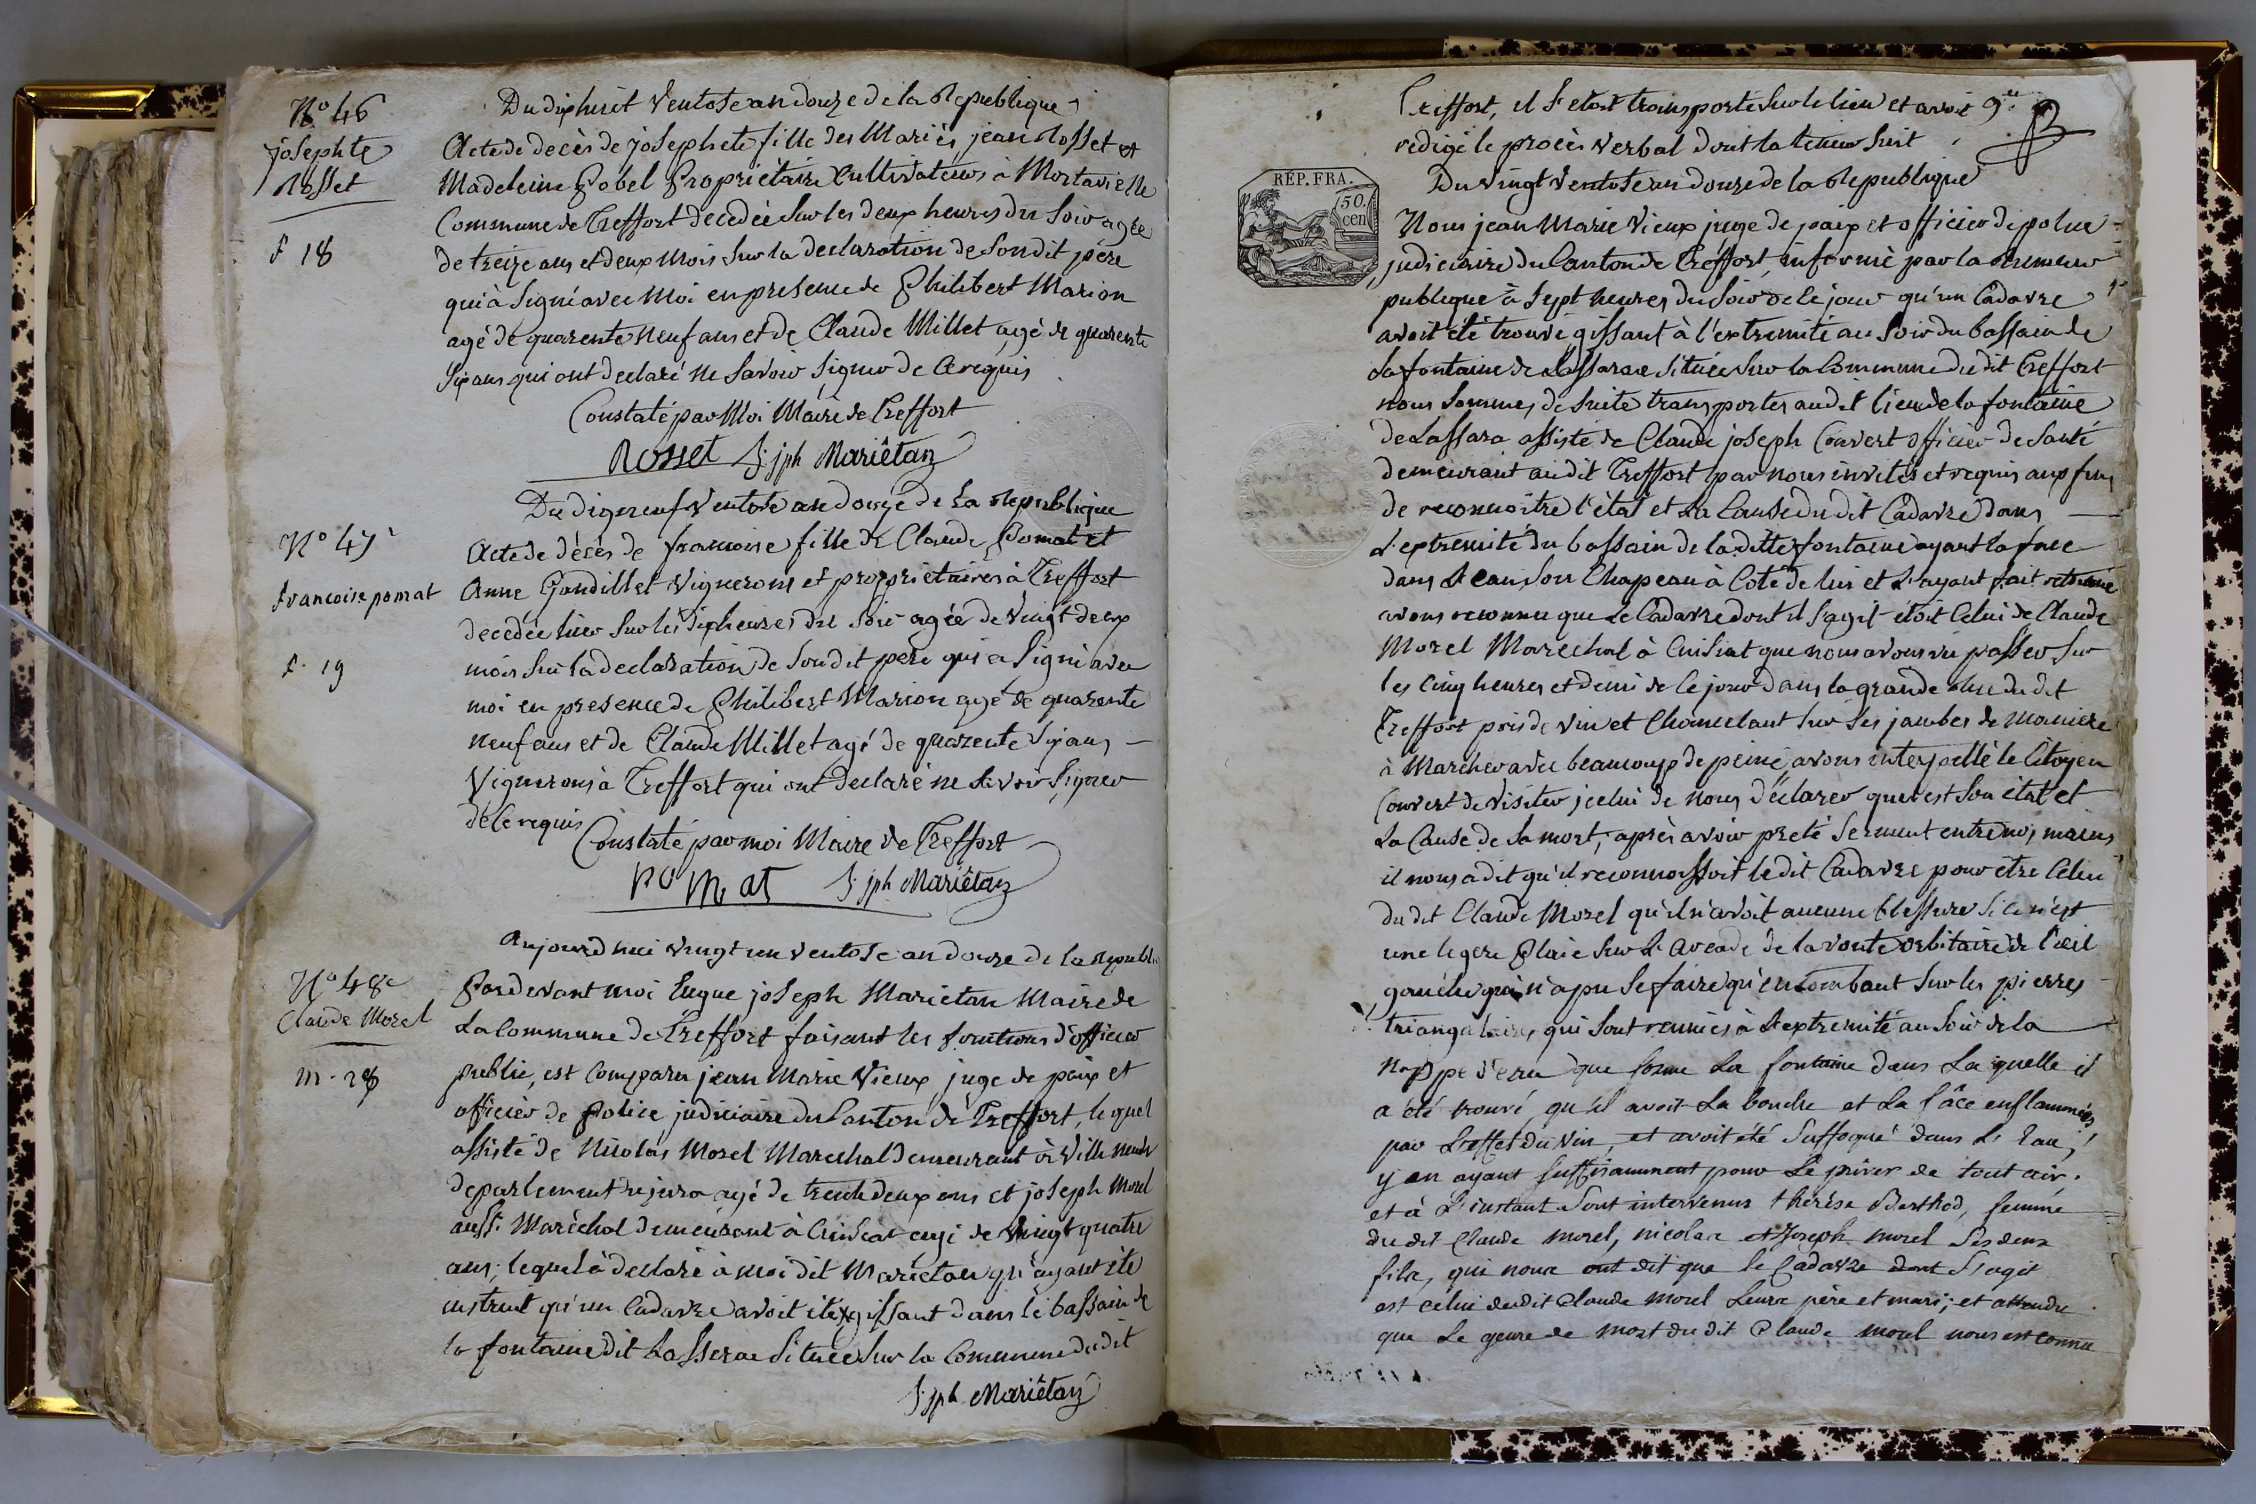 No 46
josephte
Rosset
F 18
Du dixhuit Ventose an douze de la Republique
Acte de decès de josephete fille des Mariés jean Rosset et
Madeleine Gobel Propriétaire Cultivateurs à Montavielle
Commune de Treffort decedée Sur les deux heures du Soir agée
de treize ans et deux mois Sur la declaration de Sondit père
qui à Signé avec Moi en presence de Philibert Marion
agé de quarente neuf ans et de Claude Millet agé de quarente
Six ans qui ont declaré ne Savoir Signer de ce requis
Constaté par Moi Maire de Treffort
Rosset jph Mariêtan
Du dixneuf Ventose an douze de La Republique
No 47e
francoise pomat
f. 19
Acte de décès de francoise fille de Claude Pomat et
Anne Gondillet Vignerons et proprietaires à Treffort
decedée hier Sur les Six heures du Soir agée de Vingt deux
mois Sur la declaration de Son dit père qui a Signé avec
moi en presence de Philibert Marion agé de quarente
neuf ans et de Claude Millet agé de quarente Six ans
Vignerons à Treffort qui ont declaré ne Savoir Signer
de ce requis
Constaté par moi Maire de Treffort
Pomat jph Mariêtan
Aujourd'hui vingt un ventose an douze de la Republi
No 48e
Claude Morel
m. 28
Pardevant moi joseph Mariétan Maire de
La Commune de Treffort faisant les fonctions d'officier
public, est Comparu jean Marie Vieux juge de paix et
officier de Police judiciaire du Canton de Treffort, lequel
assisté de Nicolas Morel Marechal demeurant à Ville
departement du jura agé de trente deux ans et joseph Morel
aussi Maréchal demeurant à Cuisiat agé de Vingt quatre
ans, lequel à declaré à moi dit Mariétan qu'ayant été
instruit qu'un Cadavre avoit été gissant dans le bassain de
la fontaine dit Lasserae Située Sur la Commune du dit
jph Mariêtan
Treffort, il S'etoit transporté Sur le lieu et avoit
redigé le procès verbal dont la teneur Suit
REP. FRA.
50. cen
Du vingt Ventose an douze de la Republique
Nous jean Marie Vieux juge de paix et officier de police
judiciaire du Canton de Treffort, informé par la Rumeur
publique à Sept heures du Soir de ce jour qu'un Cadavre
avoit été trouvé gissant à l'extremité au Soir du bassain de
La fontaine de Lassarae Située Sur la Commune du dit Treffort
nous Sommes de Suite transportes au dit lieu de la fontaine
de Lassara assisté de Claude joseph Convert officier de Santé
demeurant au dit Treffort par nous invités et requis aux fins
de reconnoitre l'état et La Cause du dit Cadavre dans
L'extremité du bassain de la ditte fontaine ayant la face
dans L'eau Son Chapeau à Coté de lui et L'ayant fait retourné
avons reconnu que Le Cadavre dont il S'agit étoit Celui de Claude
Morel Marechal à Cuisiat que nous avons vu passer Sur
les Cinq heures et demi de ce jour dans la grande Rue du dit
Treffort pris de Vin et Chancelant Sur Ses jambes de Maniere
à Marcher avec beaucoup de peine, avons interpellé le Citoyen
Convert de Visiter icelui de Nous déclarer quel est Son état et
La Cause de Sa mort, après avoir preté Serment entre nos mains
il nous a dit qu'il reconnoissoit le dit Cadavre pour être Celui
du dit Claude Morel qu'il n'avoit aucune blessure Si ce n'est
une legere Plaie Sur L'arcade de la voute orbitaire de l'oeil
gauche qui n'a pu Se faire qu'en tombant Sur les pierres
triangulaires qui Sont reunies à L'extremité au Soir de la
Nappe d'eau que forme La fontaine dans La quelle il
a été trouvé, qu'il avoit La bouche et La fâce enflammées
par L'effet du Vin, et avoit été Suffoqué dans L'eau,
y en ayant Suffisamment pour Le priver de tout air.
et à L'instant Sont intervenus thérèse Berthod, femme
du dit Claude Morel, nicolas et Joseph morel Ses deux
fils, qui nous ont dit que le Cadavre dont S'agit
est celui dudit Claude Morel Leurs père et mari; et attendu
que Le genre de mort du dit Claude morel nous est connu